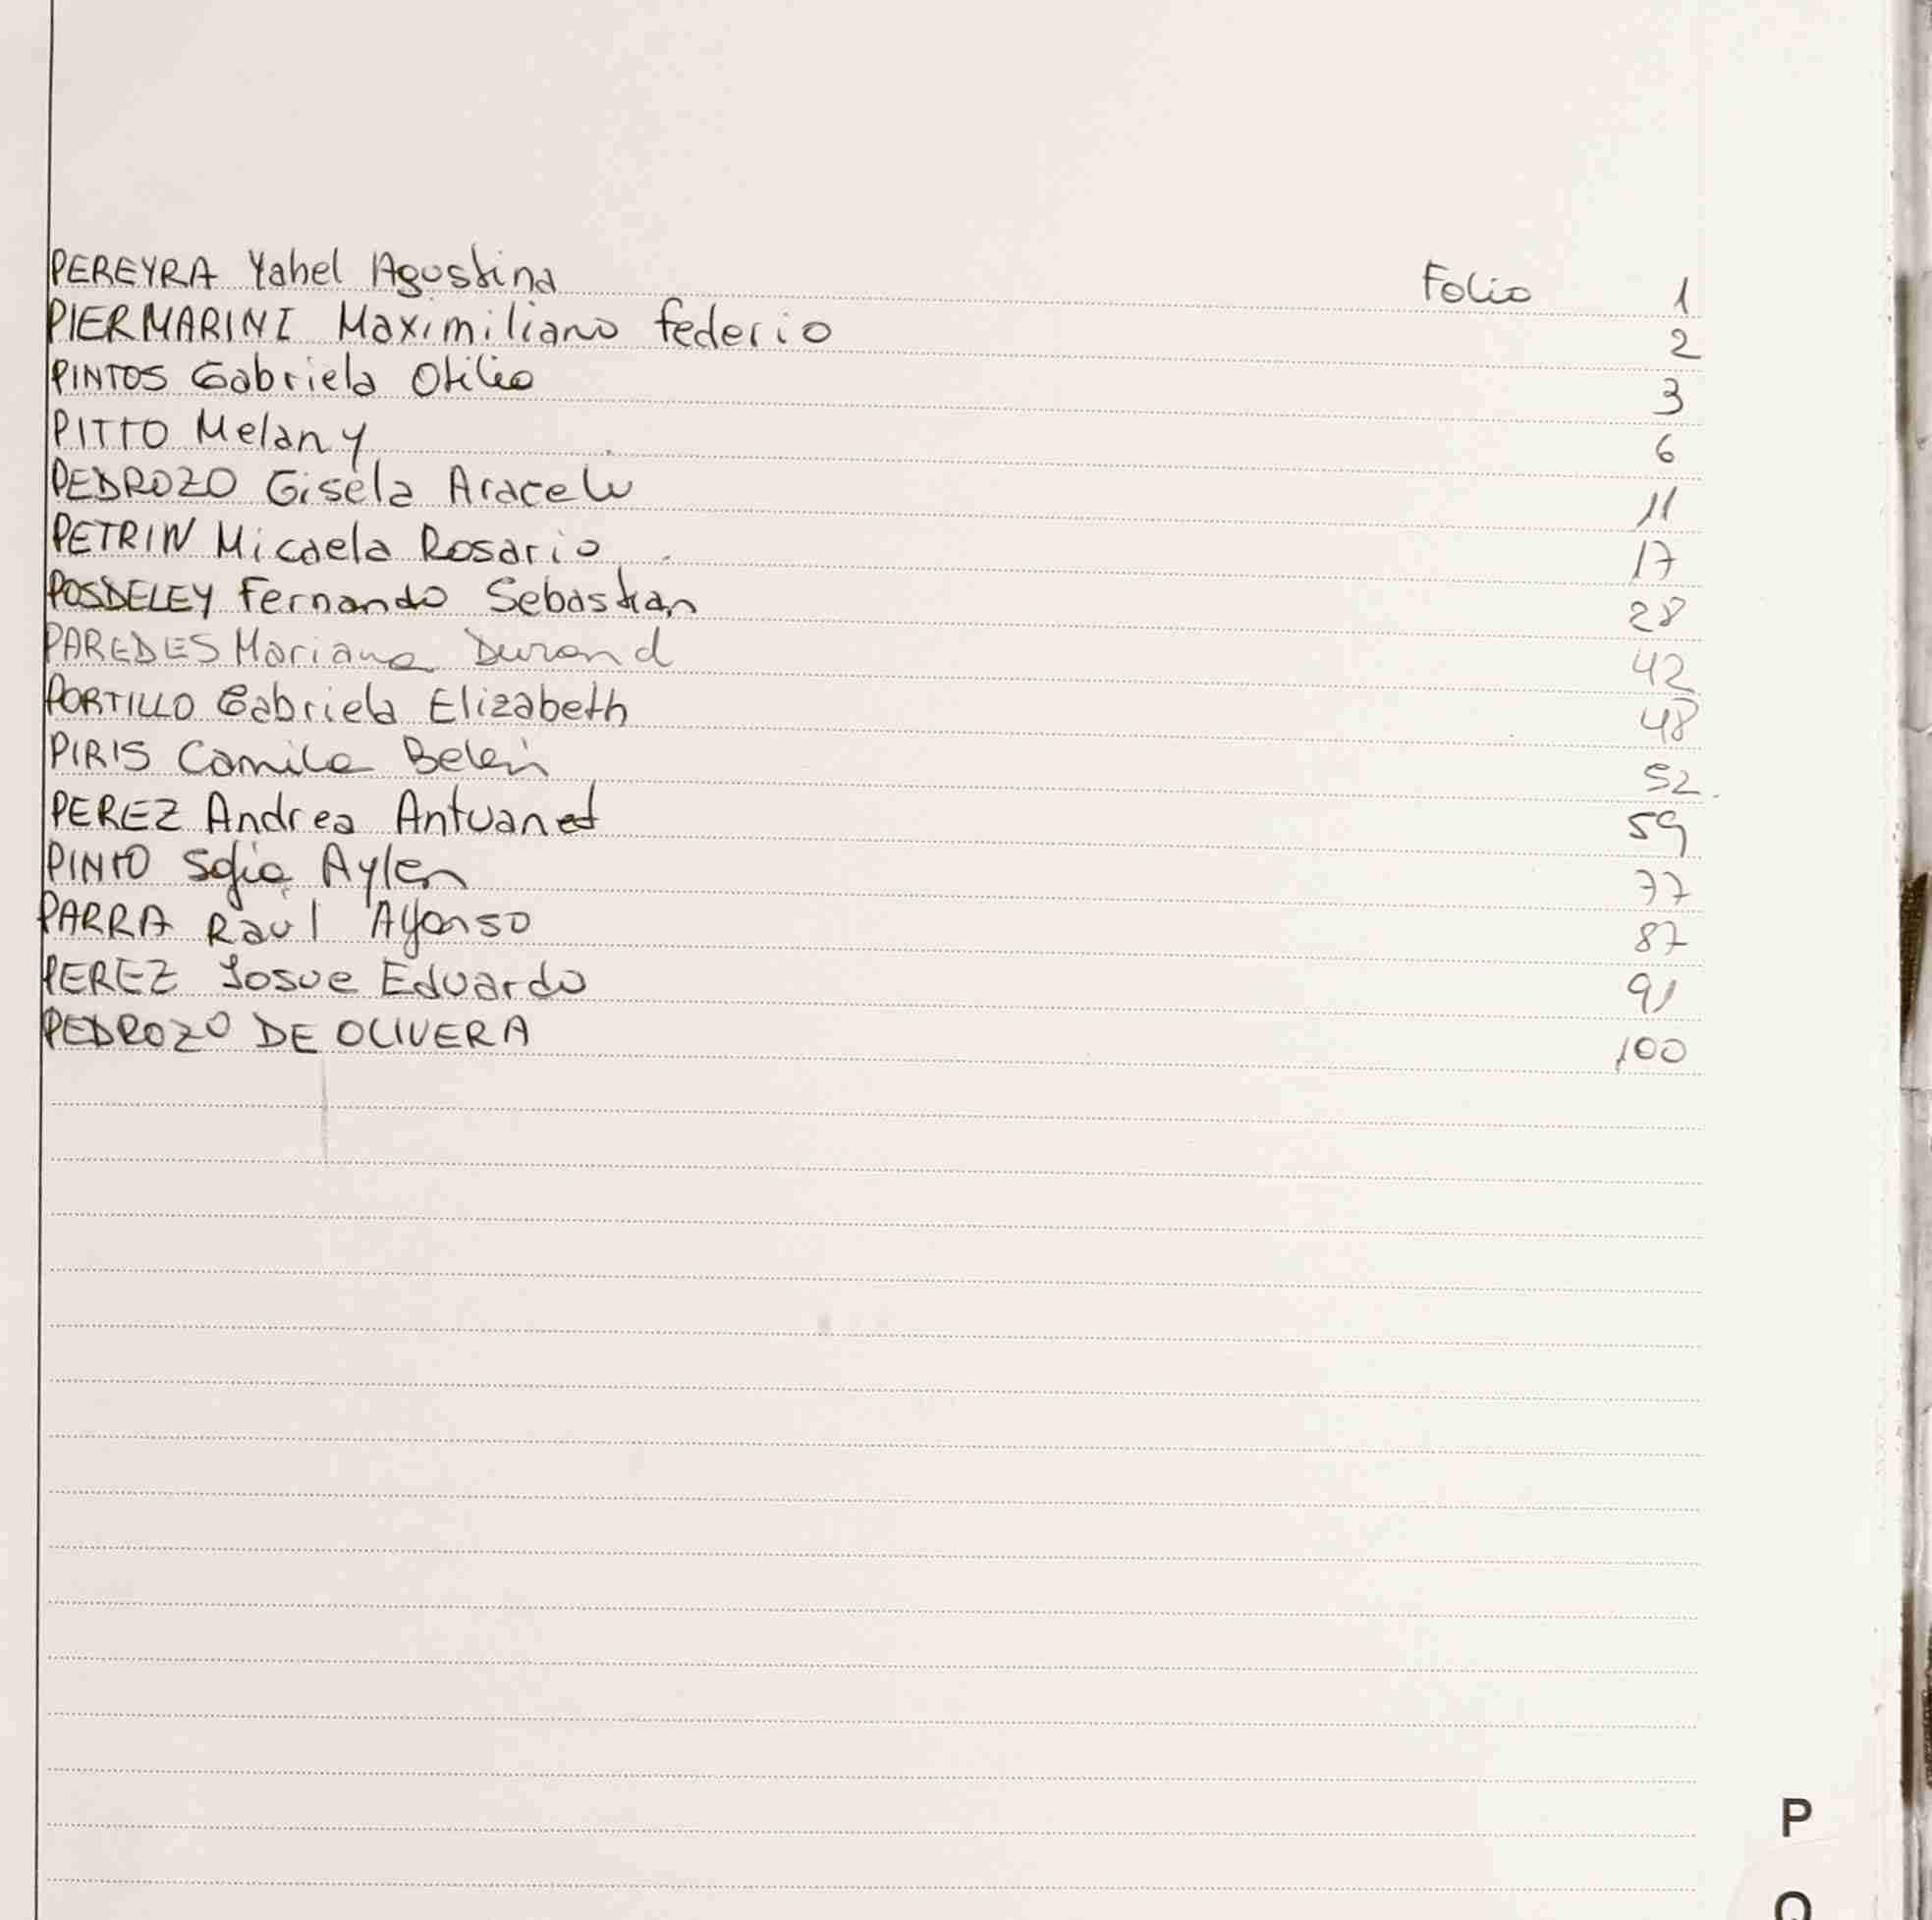 PEREYRA Yahel Agustina Folio 1
PIERMARINI Maximiliano federio 2
PINTOS Gabriela Otilia 3
PITTO Melany 6
PEDROZO Gisela Araceli 11
PETRIN Micaela Rosario 17
POSDELEY Fernando Sebastian 28
PAREDES Mariana Durand 42
PORTILLO Gabriela Elizabeth 48
PIRIS Camila Belén 52
PEREZ Andrea Antuanet 59
PINTO Sofia Aylen 77
PARRA Raúl Alfonso 87
PEREZ Josue Eduardo 91
PEDROZO DE OLIVERA 100
P
Q